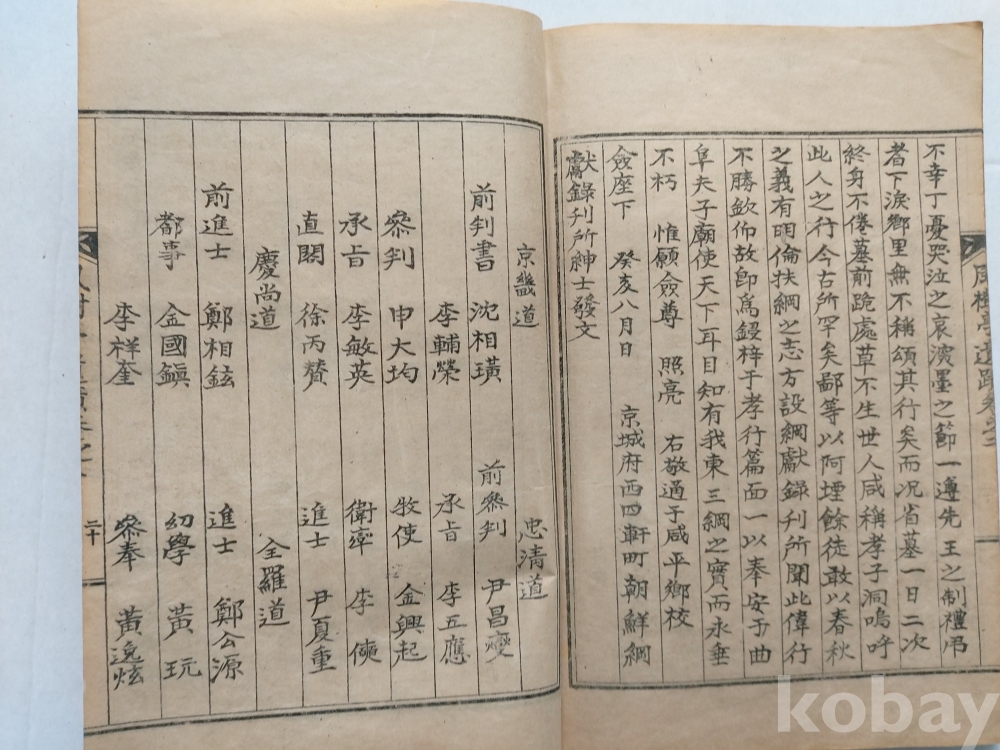 不幸丁憂哭泣之哀演墨之節一遵先王之制禮吊
者下淚鄉里無不稱頌其行矣而況省墓一日二次
終身不倦墓前跪處草不生世人咸稱孝子洞嗚呼
此人之行今古所罕矣鄙等以阿堙餘徒敢以春秋
之義有明倫扶綱之志方設綱獻錄刊所聞此偉行
不勝欽仰故即爲鋟梓于孝行篇面一以奉安于曲
阜夫子廟使天下耳目知有我東三綱之實而永垂
不朽 惟願僉尊 照亮 右敬通于咸平鄉校
僉座下 癸亥八月日 京城府西四軒町朝鮮綱
獻錄刊所紳士發文
京畿道 忠清道
前判書 沈相璜 前參判 尹昌燮
李輔榮 承旨 李五應
參判 申大均 牧使 金興起
承旨 李敏英 衛率 李
直閣 徐丙贊 進士 尹夏重
慶尚道 全羅道
前進士 鄭相鉉 進士 鄭公源
都事 金國鎭 幼學 黃玩
李祥奎 參奉 黃逸炫
二十
kobay